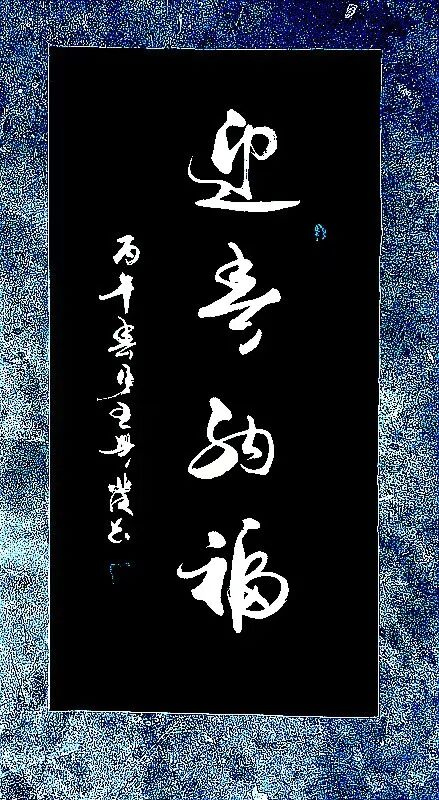 迎春纳福
丙午春月王兴